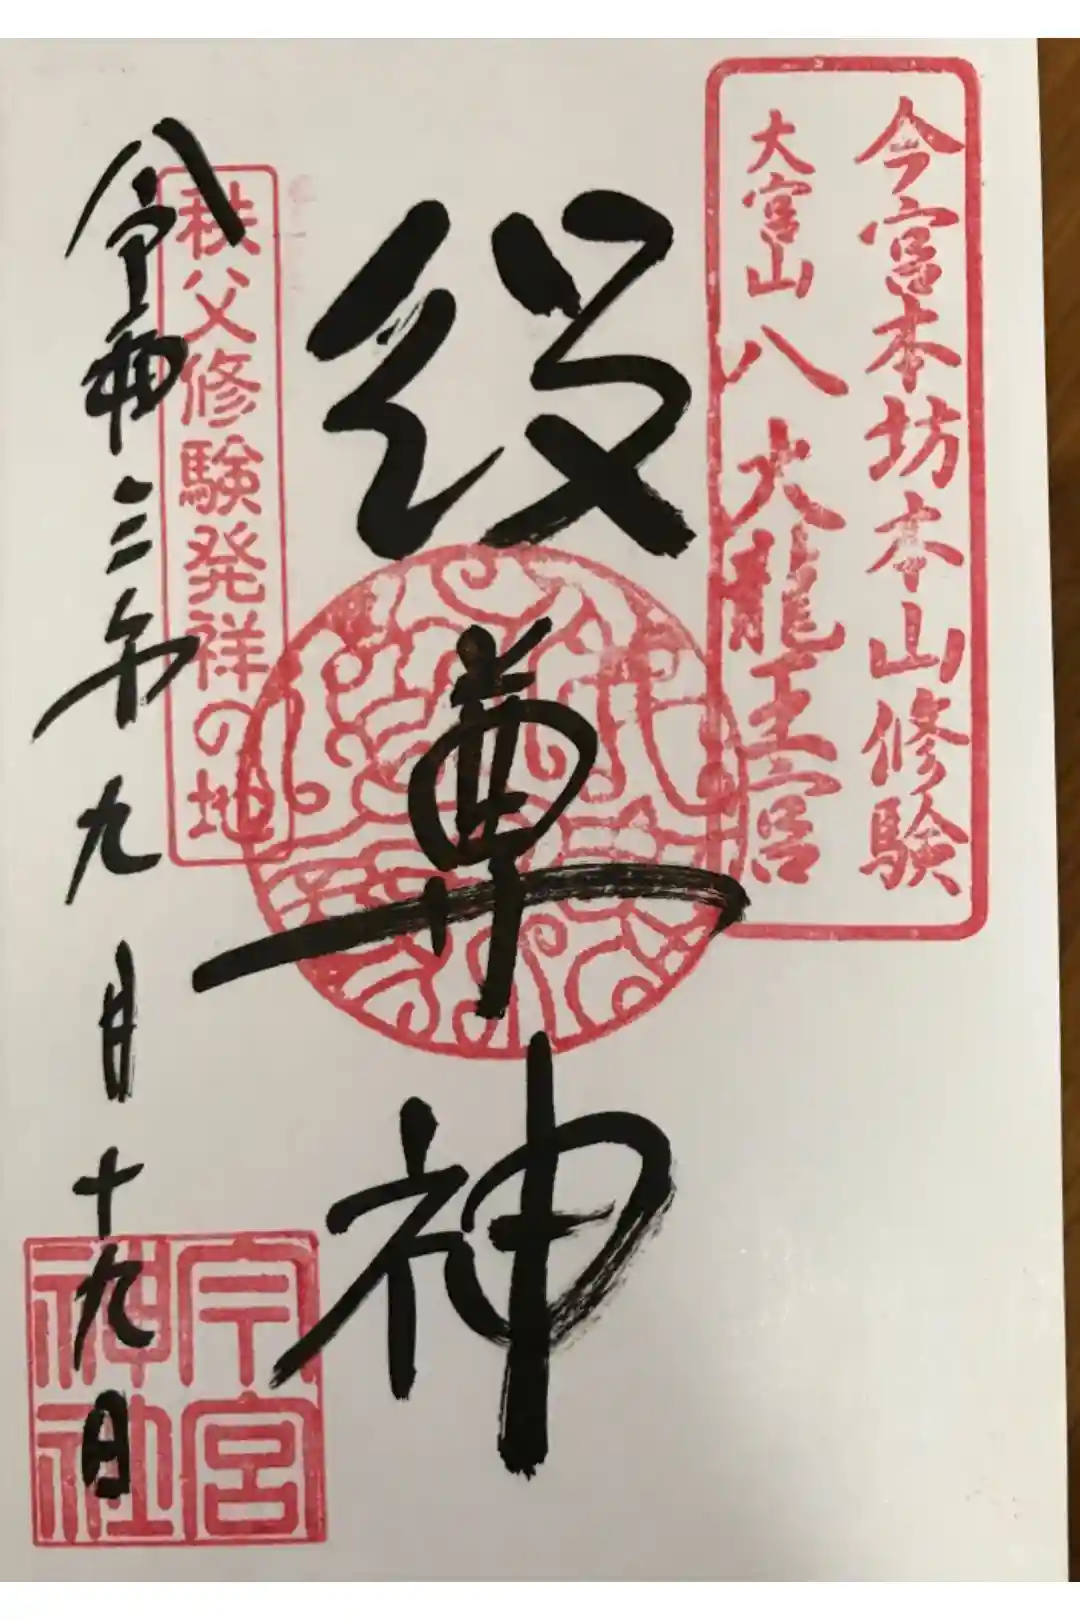 今宮本坊本山修験
大宮山 八大龍王宮
役尊神
秩父修験発祥の地
令和三年九月十九日
今宮
神社